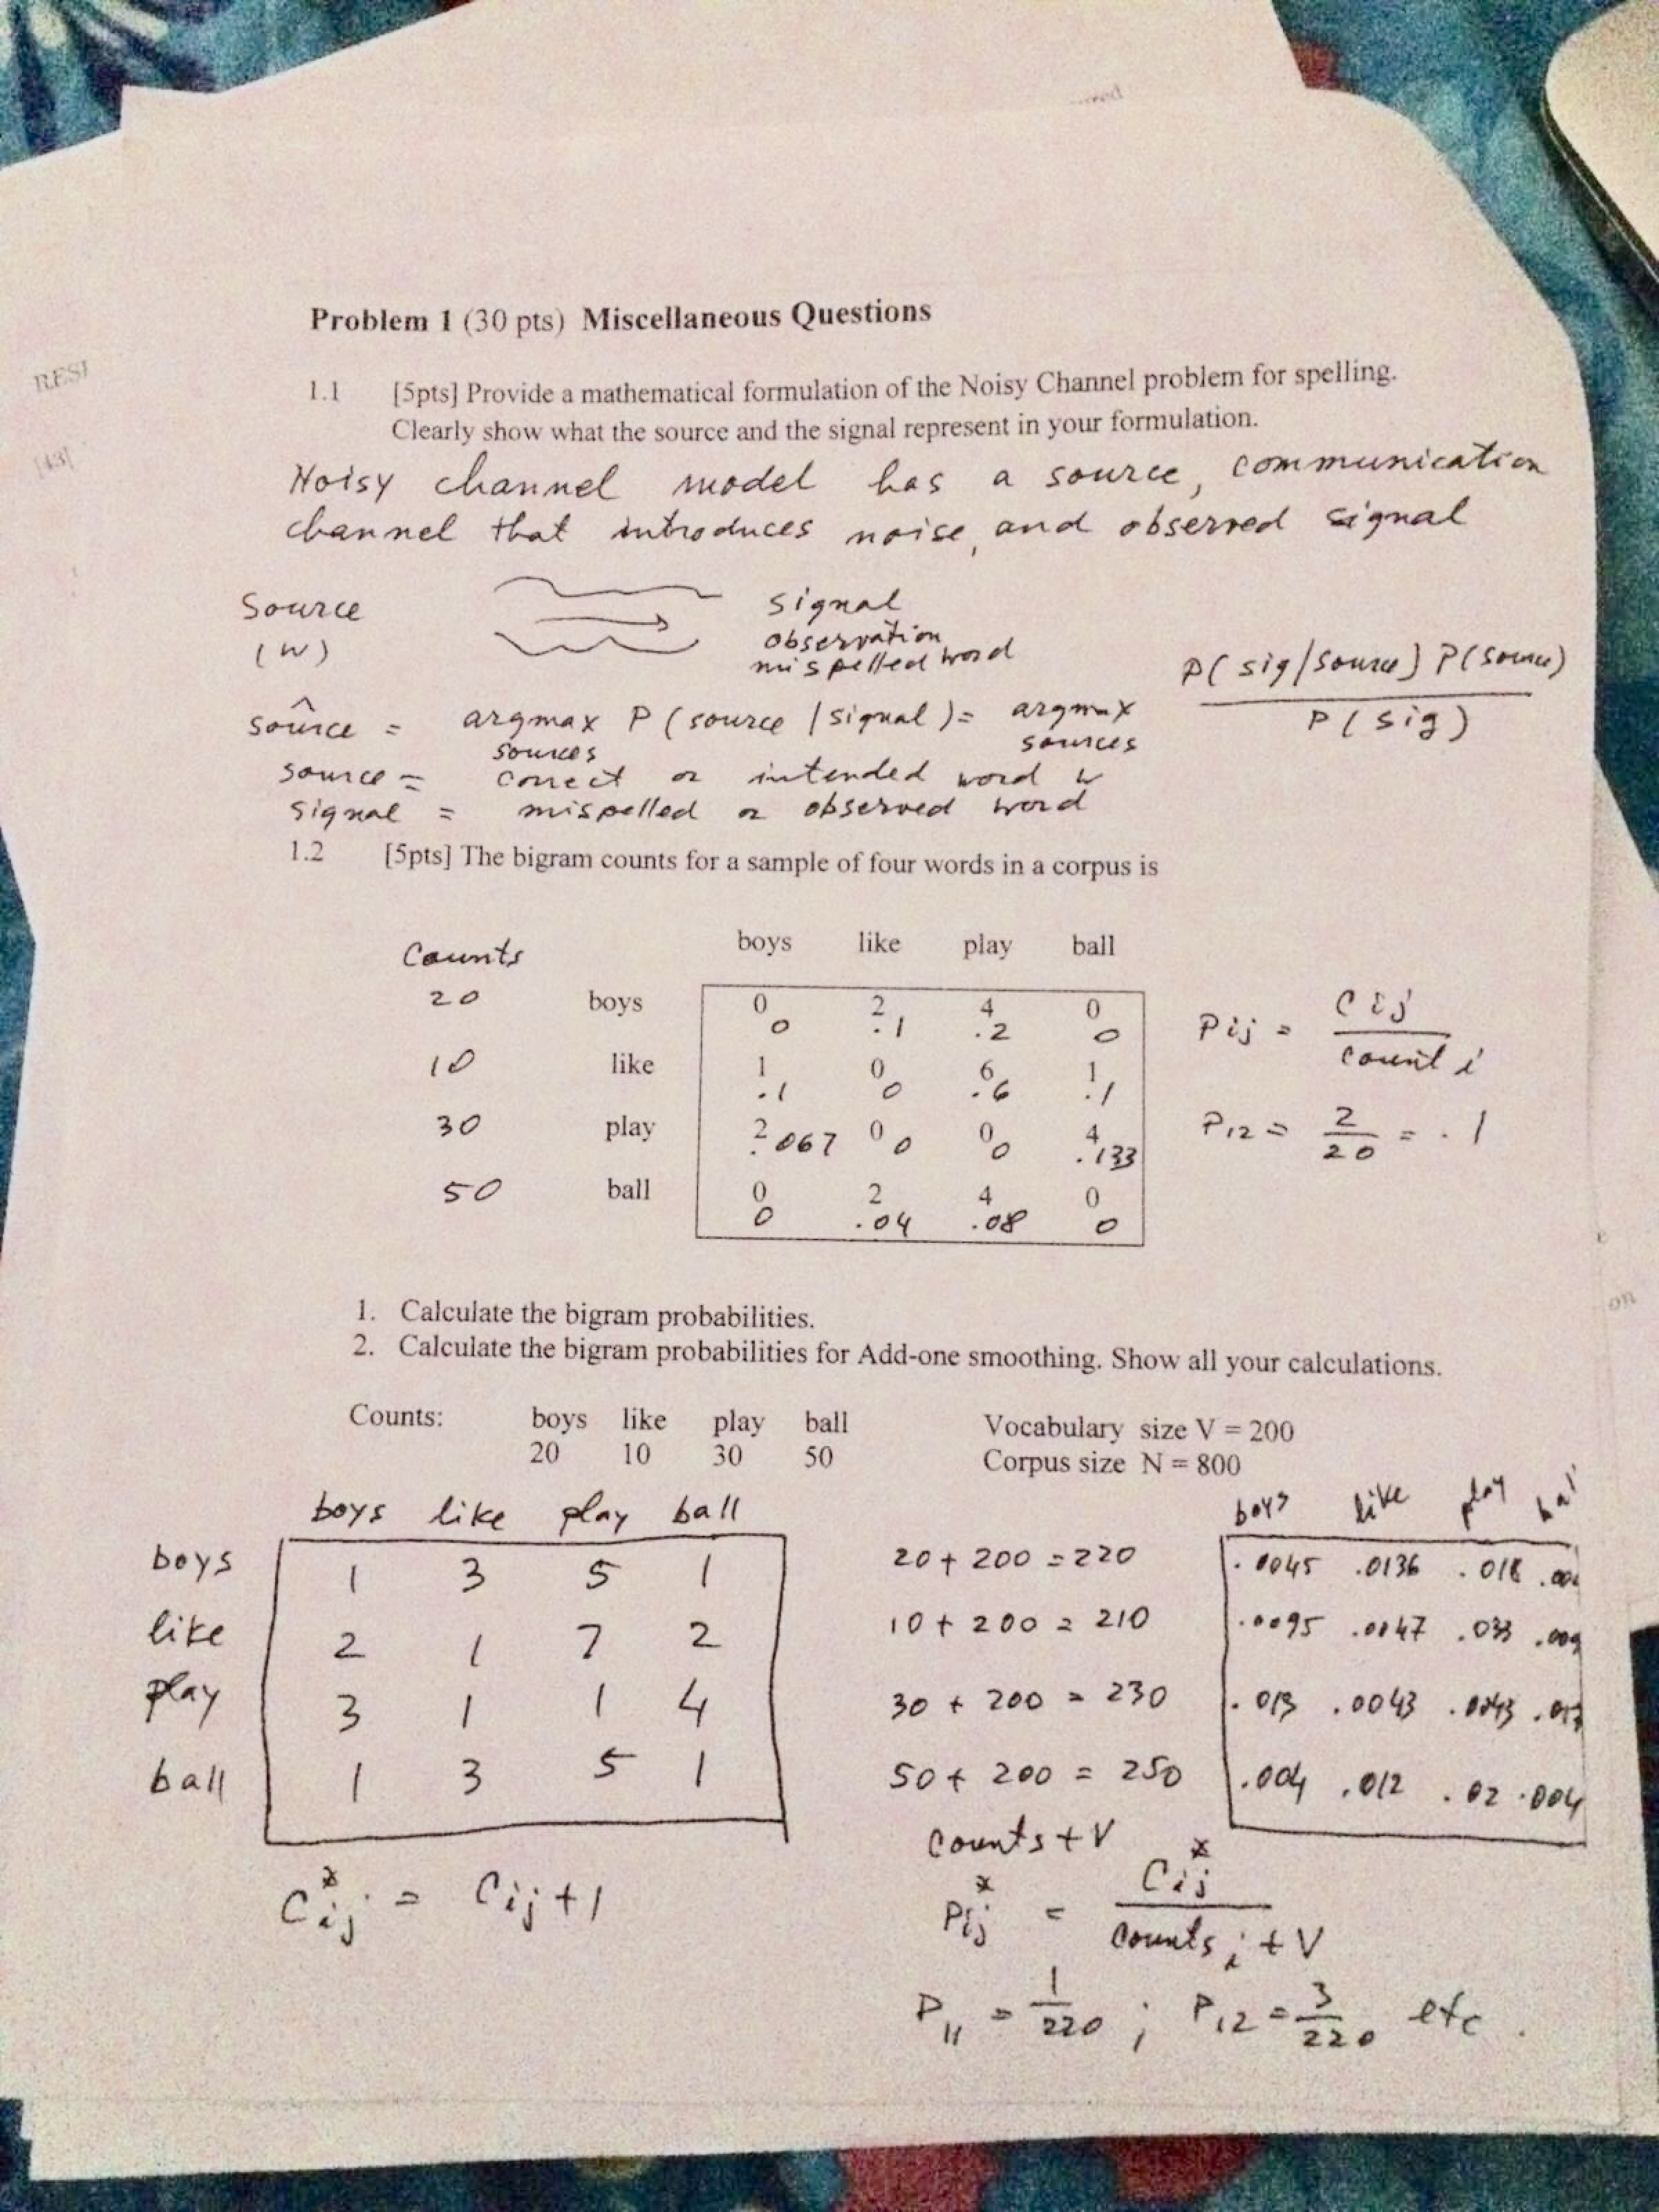 RESI
[43]
Problem 1 (30 pts) Miscellaneous Questions
1.1 [5pts] Provide a mathematical formulation of the Noisy Channel problem for spelling.
Clearly show what the source and the signal represent in your formulation.
Noisy channel model has a source, communication
channel that introduces noise, and observed signal
Source signal
(W) observation
mispelled word
P(sig/source) P(source)
soûrce = argmax P(source | signal) = argmax
sources sources P(sig)
source = correct or intended word W
signal = mispelled or observed word
1.2 [5pts] The bigram counts for a sample of four words in a corpus is
Counts boys like play ball
20 boys 0 2 4 0
0 .1 .2 0
Pij = Cij / count i
10 like 1 0 6 1
.1 0 .6 .1
30 play 2 0 0 4
.067 0 0 .133
P12 = 2/20 = .1
50 ball 0 2 4 0
0 .04 .08 0
on
1. Calculate the bigram probabilities.
2. Calculate the bigram probabilities for Add-one smoothing. Show all your calculations.
Counts: boys like play ball Vocabulary size V = 200
20 10 30 50 Corpus size N = 800
boys like play ball boys like play bal
boys 1 3 5 1 20 + 200 = 220 .0045 .0136 .018
like 2 1 7 2 10 + 200 = 210 .0095 .0047 .033 .009
play 3 1 1 4 30 + 200 = 230 .013 .0043 .0043
ball 1 3 5 1 50 + 200 = 250 .004 .012 .02 .004
counts + V
C*ij = Cij + 1 P*ij = C*ij / counts i + V
P11 = 1/220 ; P12 = 3/220 etc.